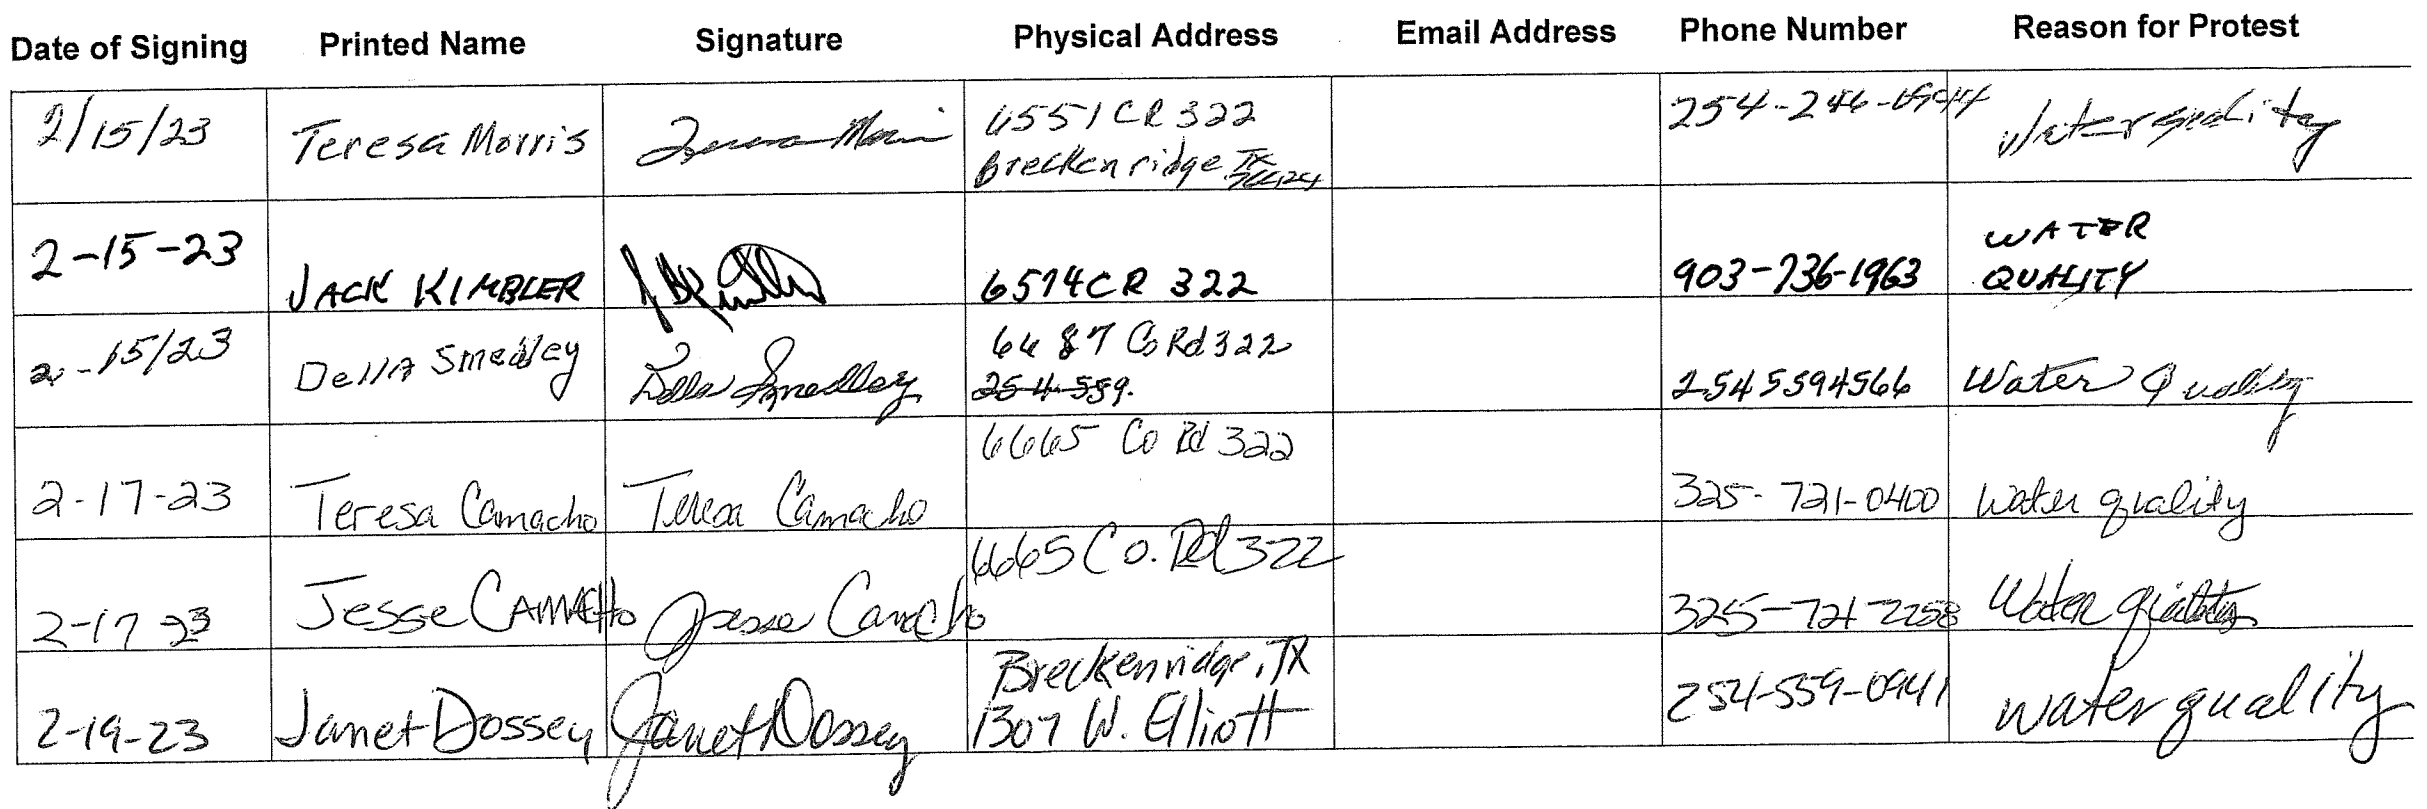 Date of Signing Printed Name Signature Physical Address Email Address Phone Number Reason for Protest
2/15/23 Teresa Morris Teresa Morris 6551 CR 322 254-246- Water quality
Breckenridge TX
2-15-23 JACK KIMBLER 6574 CR 322 903-736-1963 WATER
QUALITY
2-15/23 Della Smedley Della Smedley 6687 Co Rd 322 2545594566 Water Quality
254-559.
2-17-23 Teresa Camacho Teresa Camacho 6665 Co Rd 322 325-721-0400 Water quality
2-17-23 Jesse CAMACHO Jesse Camacho 6665 Co. Rd 322 325-721-2258 Water quality
2-19-23 Janet Dossey Janet Dossey Breckenridge, TX 254-559-0941 water quality
1307 W. Elliott